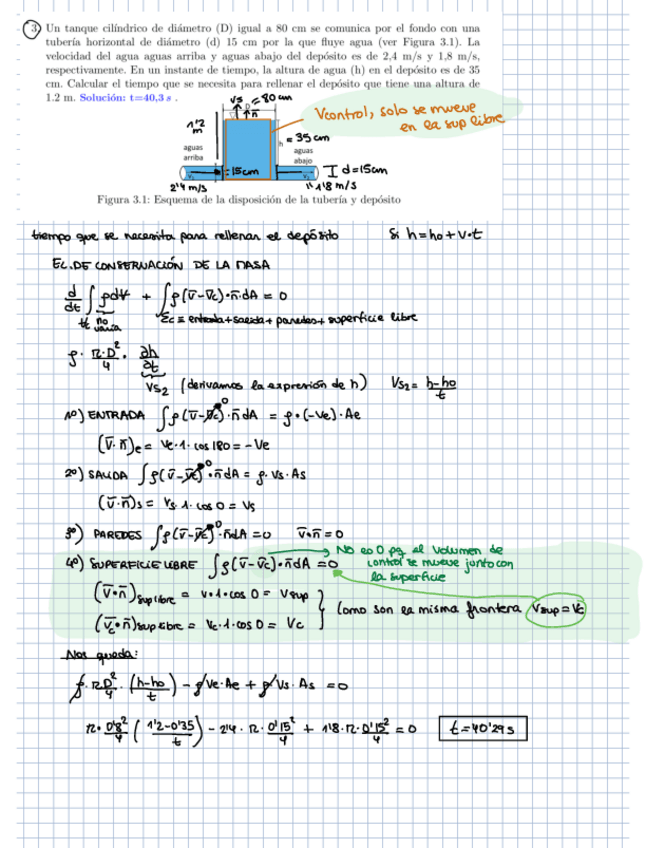 3. Un tanque cilíndrico de diámetro (D) igual a 80 cm se comunica por el fondo con una
tubería horizontal de diámetro (d) 15 cm por la que fluye agua (ver Figura 3.1). La
velocidad del agua aguas arriba y aguas abajo del depósito es de 2,4 m/s y 1,8 m/s,
respectivamente. En un instante de tiempo, la altura de agua (h) en el depósito es de 35
cm. Calcular el tiempo que se necesita para rellenar el depósito que tiene una altura de
1.2 m. Solución: t=40,3 s .
Vs = 80 cm
n̅
Vcontrol, solo se mueve
en la sup libre
1'2
m
h = 35 cm
aguas
arriba
aguas
abajo
= 15cm
d=15cm
2'4 m/s
1'8 m/s
Figura 3.1: Esquema de la disposición de la tubería y depósito
tiempo que se necesita para rellenar el depósito Si h = ho + v·t
EC. DE CONSERVACIÓN DE LA MASA
d/dt ∫ ρdV + ∫ ρ(v̅-v̅c)·n̅·dA = 0
no
varía
Σc = entrada + salida + paredes + superficie libre
ρ · π·D²/4 · ∂h/∂t
VS₂ (derivamos la expresión de h) VS₂ = h-ho/t
1º) ENTRADA ∫ρ(v̅-v̅c)⁰·n̅dA = ρ·(-Ve)·Ae
(v̅·n̅)e = Ve·1·cos180 = -Ve
2º) SALIDA ∫ρ(v̅-v̅c)⁰·n̅dA = ρ·Vs·As
(v̅·n̅)s = Vs·1·cos 0 = Vs
3º) PAREDES ∫ρ(v̅-v̅c)⁰·n̅dA = 0 v̅·n̅ = 0
No es 0 pq el volumen de
control se mueve junto con
la superficie
4º) SUPERFICIE LIBRE ∫ρ(v̅-v̅c)·n̅dA = 0
(v̅·n̅)sup libre = v·1·cos 0 = Vsup
(v̅c·n̅)sup libre = Vc·1·cos 0 = Vc
Como son la misma frontera Vsup = Vc
Nos queda:
ρ·πD²/4·(h-ho/t) - ρVe·Ae + ρVs·As = 0
π·0'8²/4 (1'2-0'35/t) - 2'4·π·0'15²/4 + 1'8·π·0'15²/4 = 0 t = 40'29 s